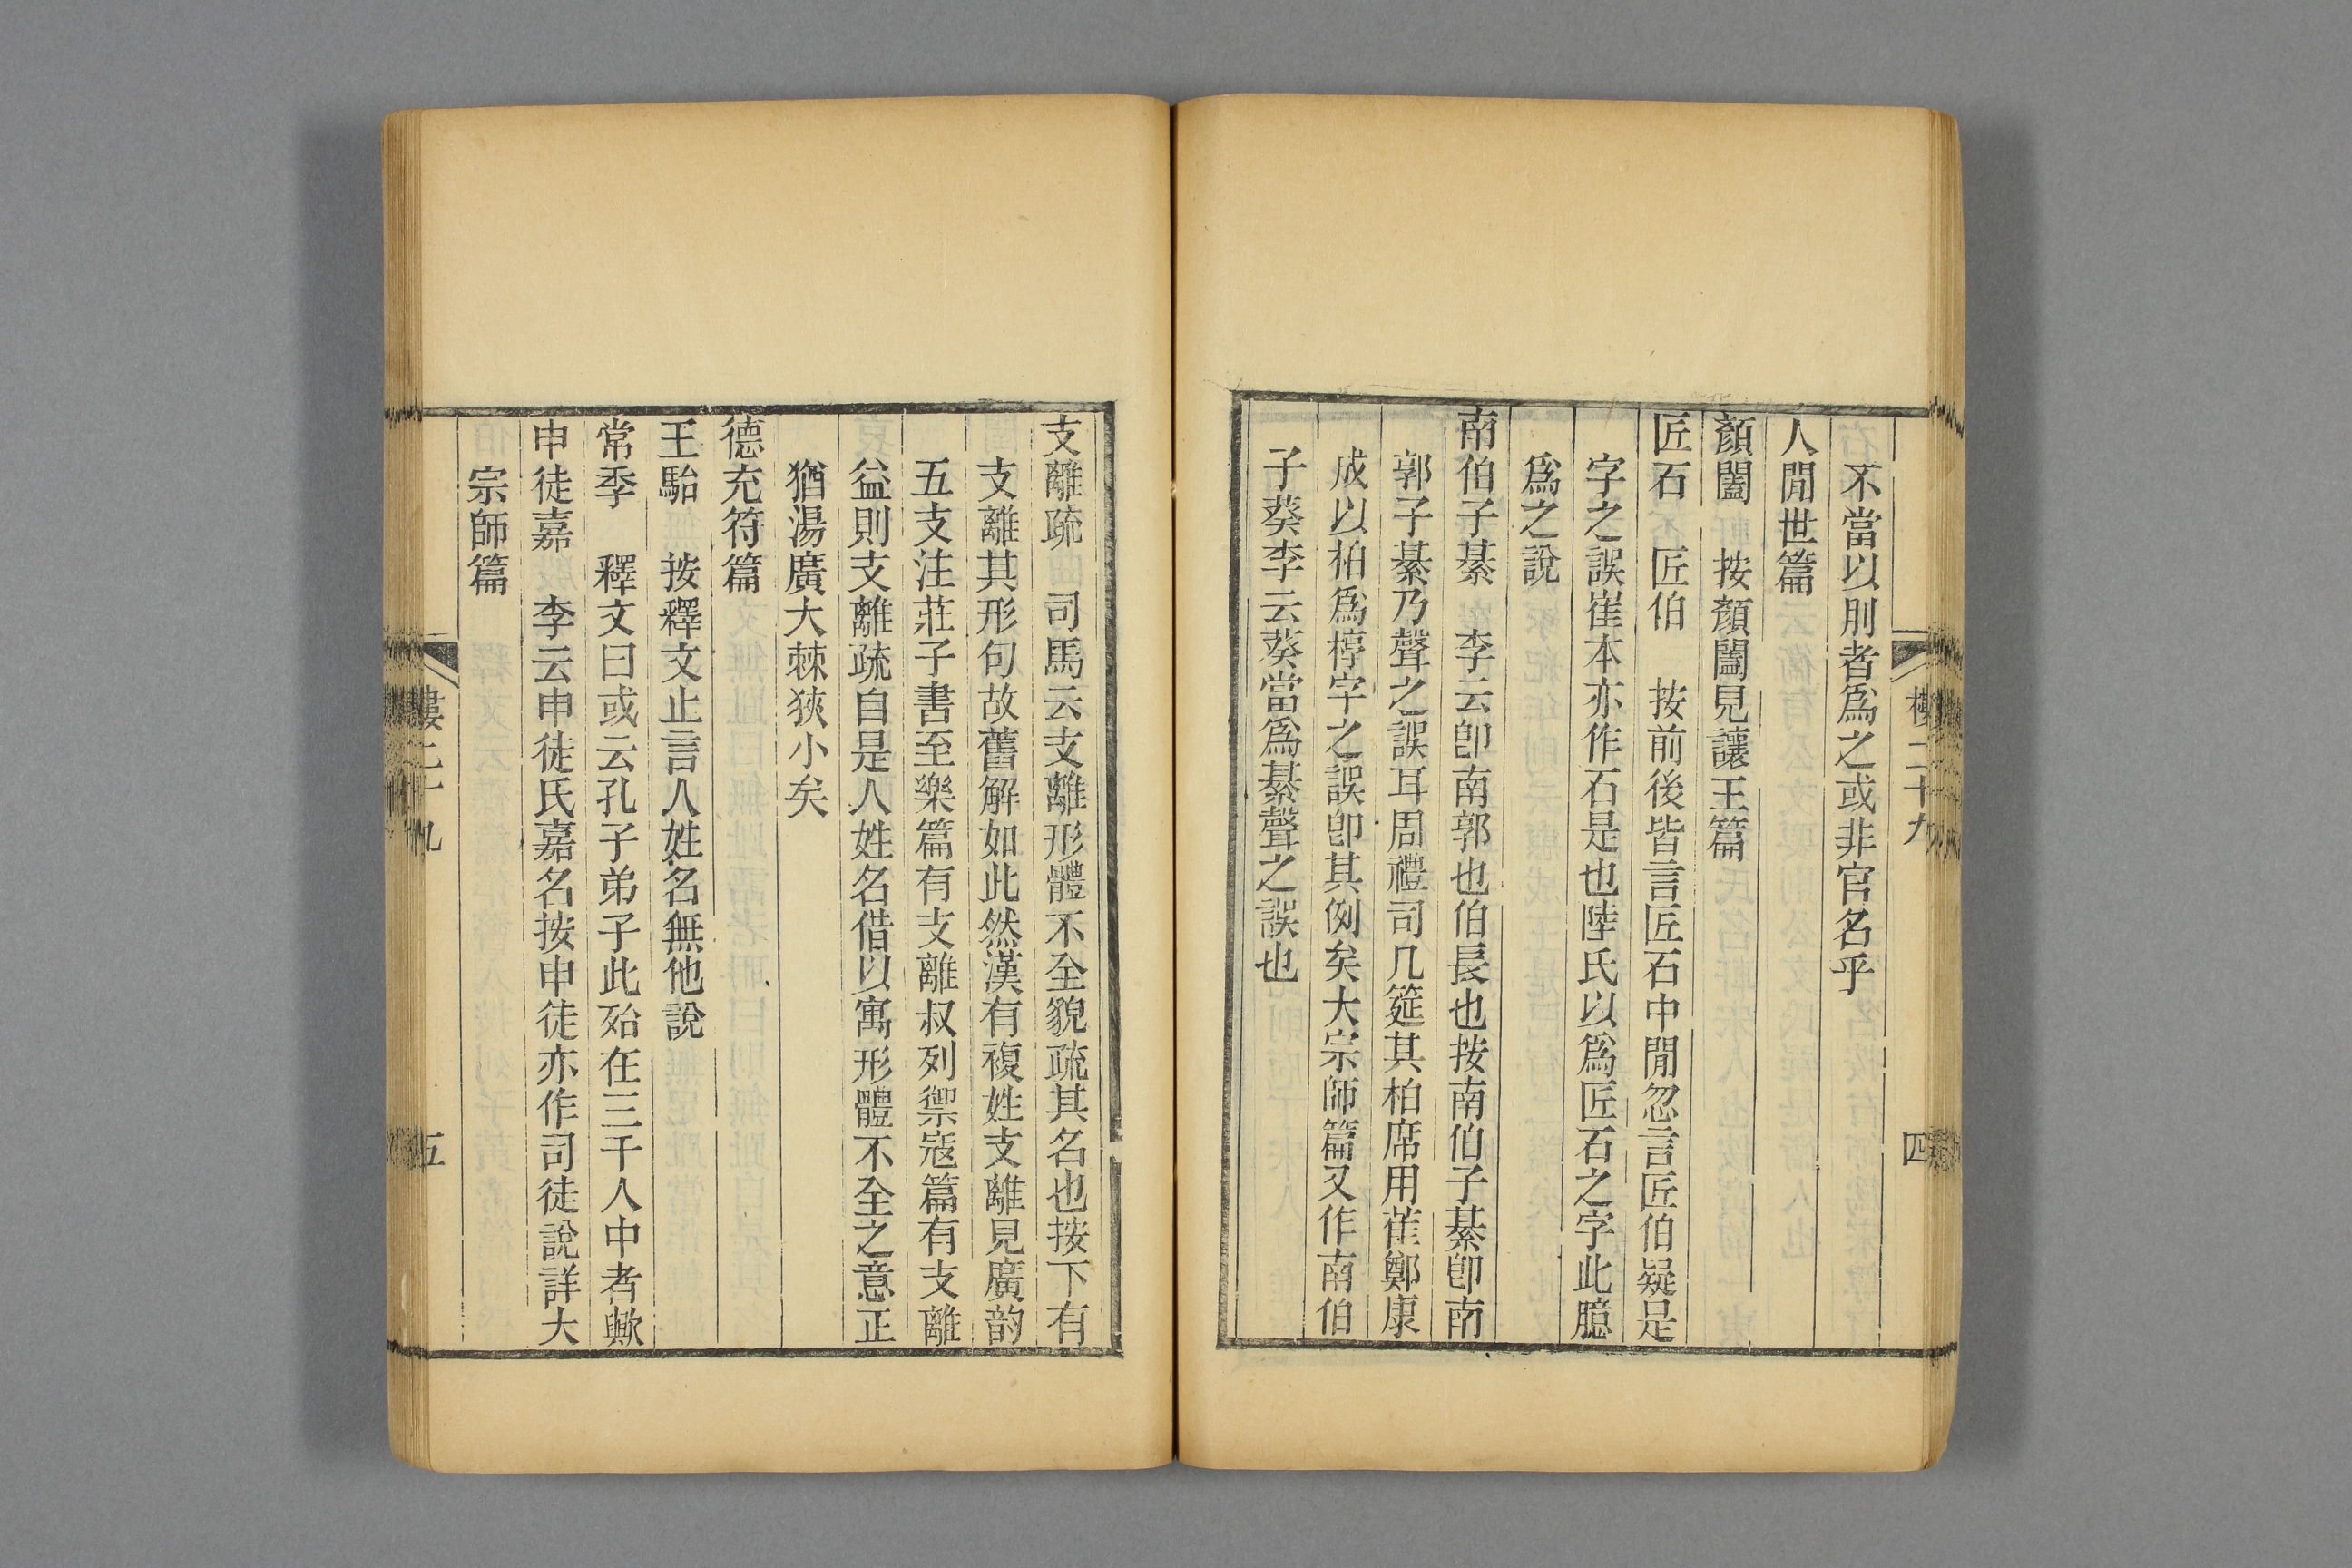 不當以刖者爲之或非官名乎
人閒世篇
顏闔　按顏闔見讓王篇
匠石　匠伯　按前後皆言匠石中閒忽言匠伯疑是
字之誤崔本亦作石是也陸氏以爲匠石之字此臆
爲之說
南伯子綦　李云卽南郭也伯長也按南伯子綦卽南
郭子綦乃聲之誤耳周禮司几筵其柏席用萑鄭康
成以柏爲椁字之誤卽其例矣大宗師篇又作南伯
子葵李云葵當爲綦聲之誤也
樓二十九
四
支離疏　司馬云支離形體不全貌疏其名也按下有
支離其形句故舊解如此然漢有複姓支離見廣韵
五支注莊子書至樂篇有支離叔列禦寇篇有支離
益則支離疏自是人姓名借以寓形體不全之意正
猶湯廣大棘狹小矣
德充符篇
王駘　按釋文止言人姓名無他說
常季　釋文曰或云孔子弟子此殆在三千人中者歟
申徒嘉　李云申徒氏嘉名按申徒亦作司徒說詳大
宗師篇
樓二十九
五